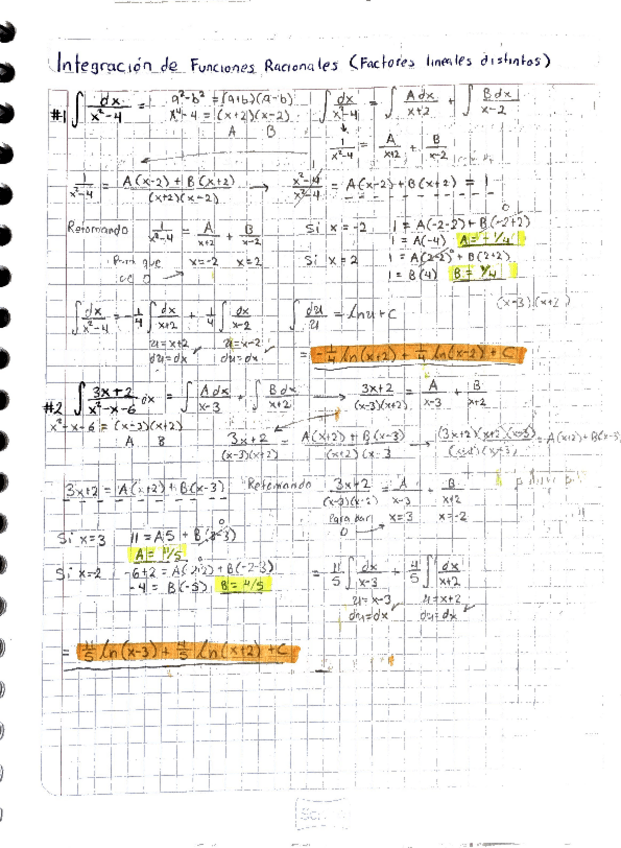 Integración de Funciones Racionales (Factores lineales distintos)
#1 ∫ dx/(x²-4) = a²-b² = (a+b)(a-b) ∫ dx/(x²-4) = ∫ A dx/(x+2) + ∫ B dx/(x-2)
x²-4 = (x+2)(x-2)
A B
1/(x²-4) = A/(x+2) + B/(x-2)
1/(x²-4) = (A(x-2) + B(x+2))/((x+2)(x-2)) → (x²-4)/(x²-4) = A(x-2) + B(x+2) = 1
Retomando 1/(x²-4) = A/(x+2) + B/(x-2) Si x = -2 1 = A(-2-2) + B(-2+2) 0
1 = A(-4) A = -1/4
Para que x=-2 x=2 Si x = 2 1 = A(2-2) 0 + B(2+2)
0 1 = B(4) B = 1/4
(x-3)(x+2)
∫ dx/(x²-4) = -1/4 ∫ dx/(x+2) + 1/4 ∫ dx/(x-2) ∫ du/u = lnu + C
u=x+2 u=x-2
du=dx ✓ du=dx ✓ = -1/4 ln(x+2) + 1/4 ln(x-2) + C
#2 ∫ (3x+2)/(x²-x-6) dx = ∫ A dx/(x-3) + ∫ B dx/(x+2) → (3x+2)/((x-3)(x+2)) = A/(x-3) + B/(x+2)
x²-x-6 = (x-3)(x+2)
A B
(3x+2)/((x-3)(x+2)) = (A(x+2) + B(x-3))/((x+2)(x-3)) → (3x+2)(x+2)(x-3) = A(x+2) + B(x-3)
3x+2 = A(x+2) + B(x-3) Retomando (3x+2)/((x-3)(x-2)) = A/(x-3) + B/(x+2)
Para dar 0 → x=3 x=-2
Si x=3 11 = A5 + B(3-3) 0
A = 11/5
Si x=-2 -6+2 = A(-2+2) 0 + B(-2-3)
-4 = B(-5) B = 4/5
= 11/5 ∫ dx/(x-3) + 4/5 ∫ dx/(x+2)
u=x-3 u=x+2
du=dx ✓ du=dx ✓
= 11/5 ln(x-3) + 4/5 ln(x+2) + C